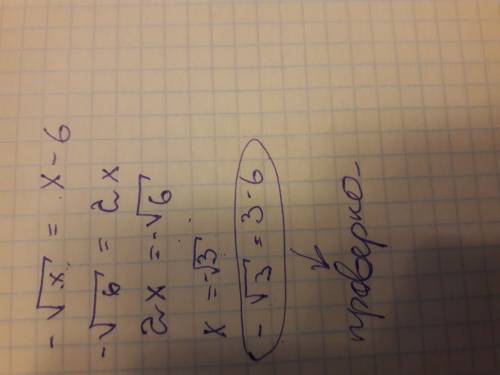 -√x = x - 6
-√6 = 2x
2x = -√6
x = -√3
-√3 = 3 - 6
проверка